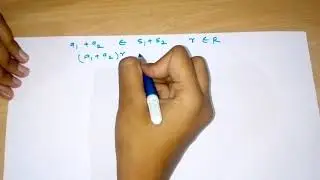 a₁ + a₂ ∈ S₁ + S₂ r ∈ R
(a₁ + a₂) r